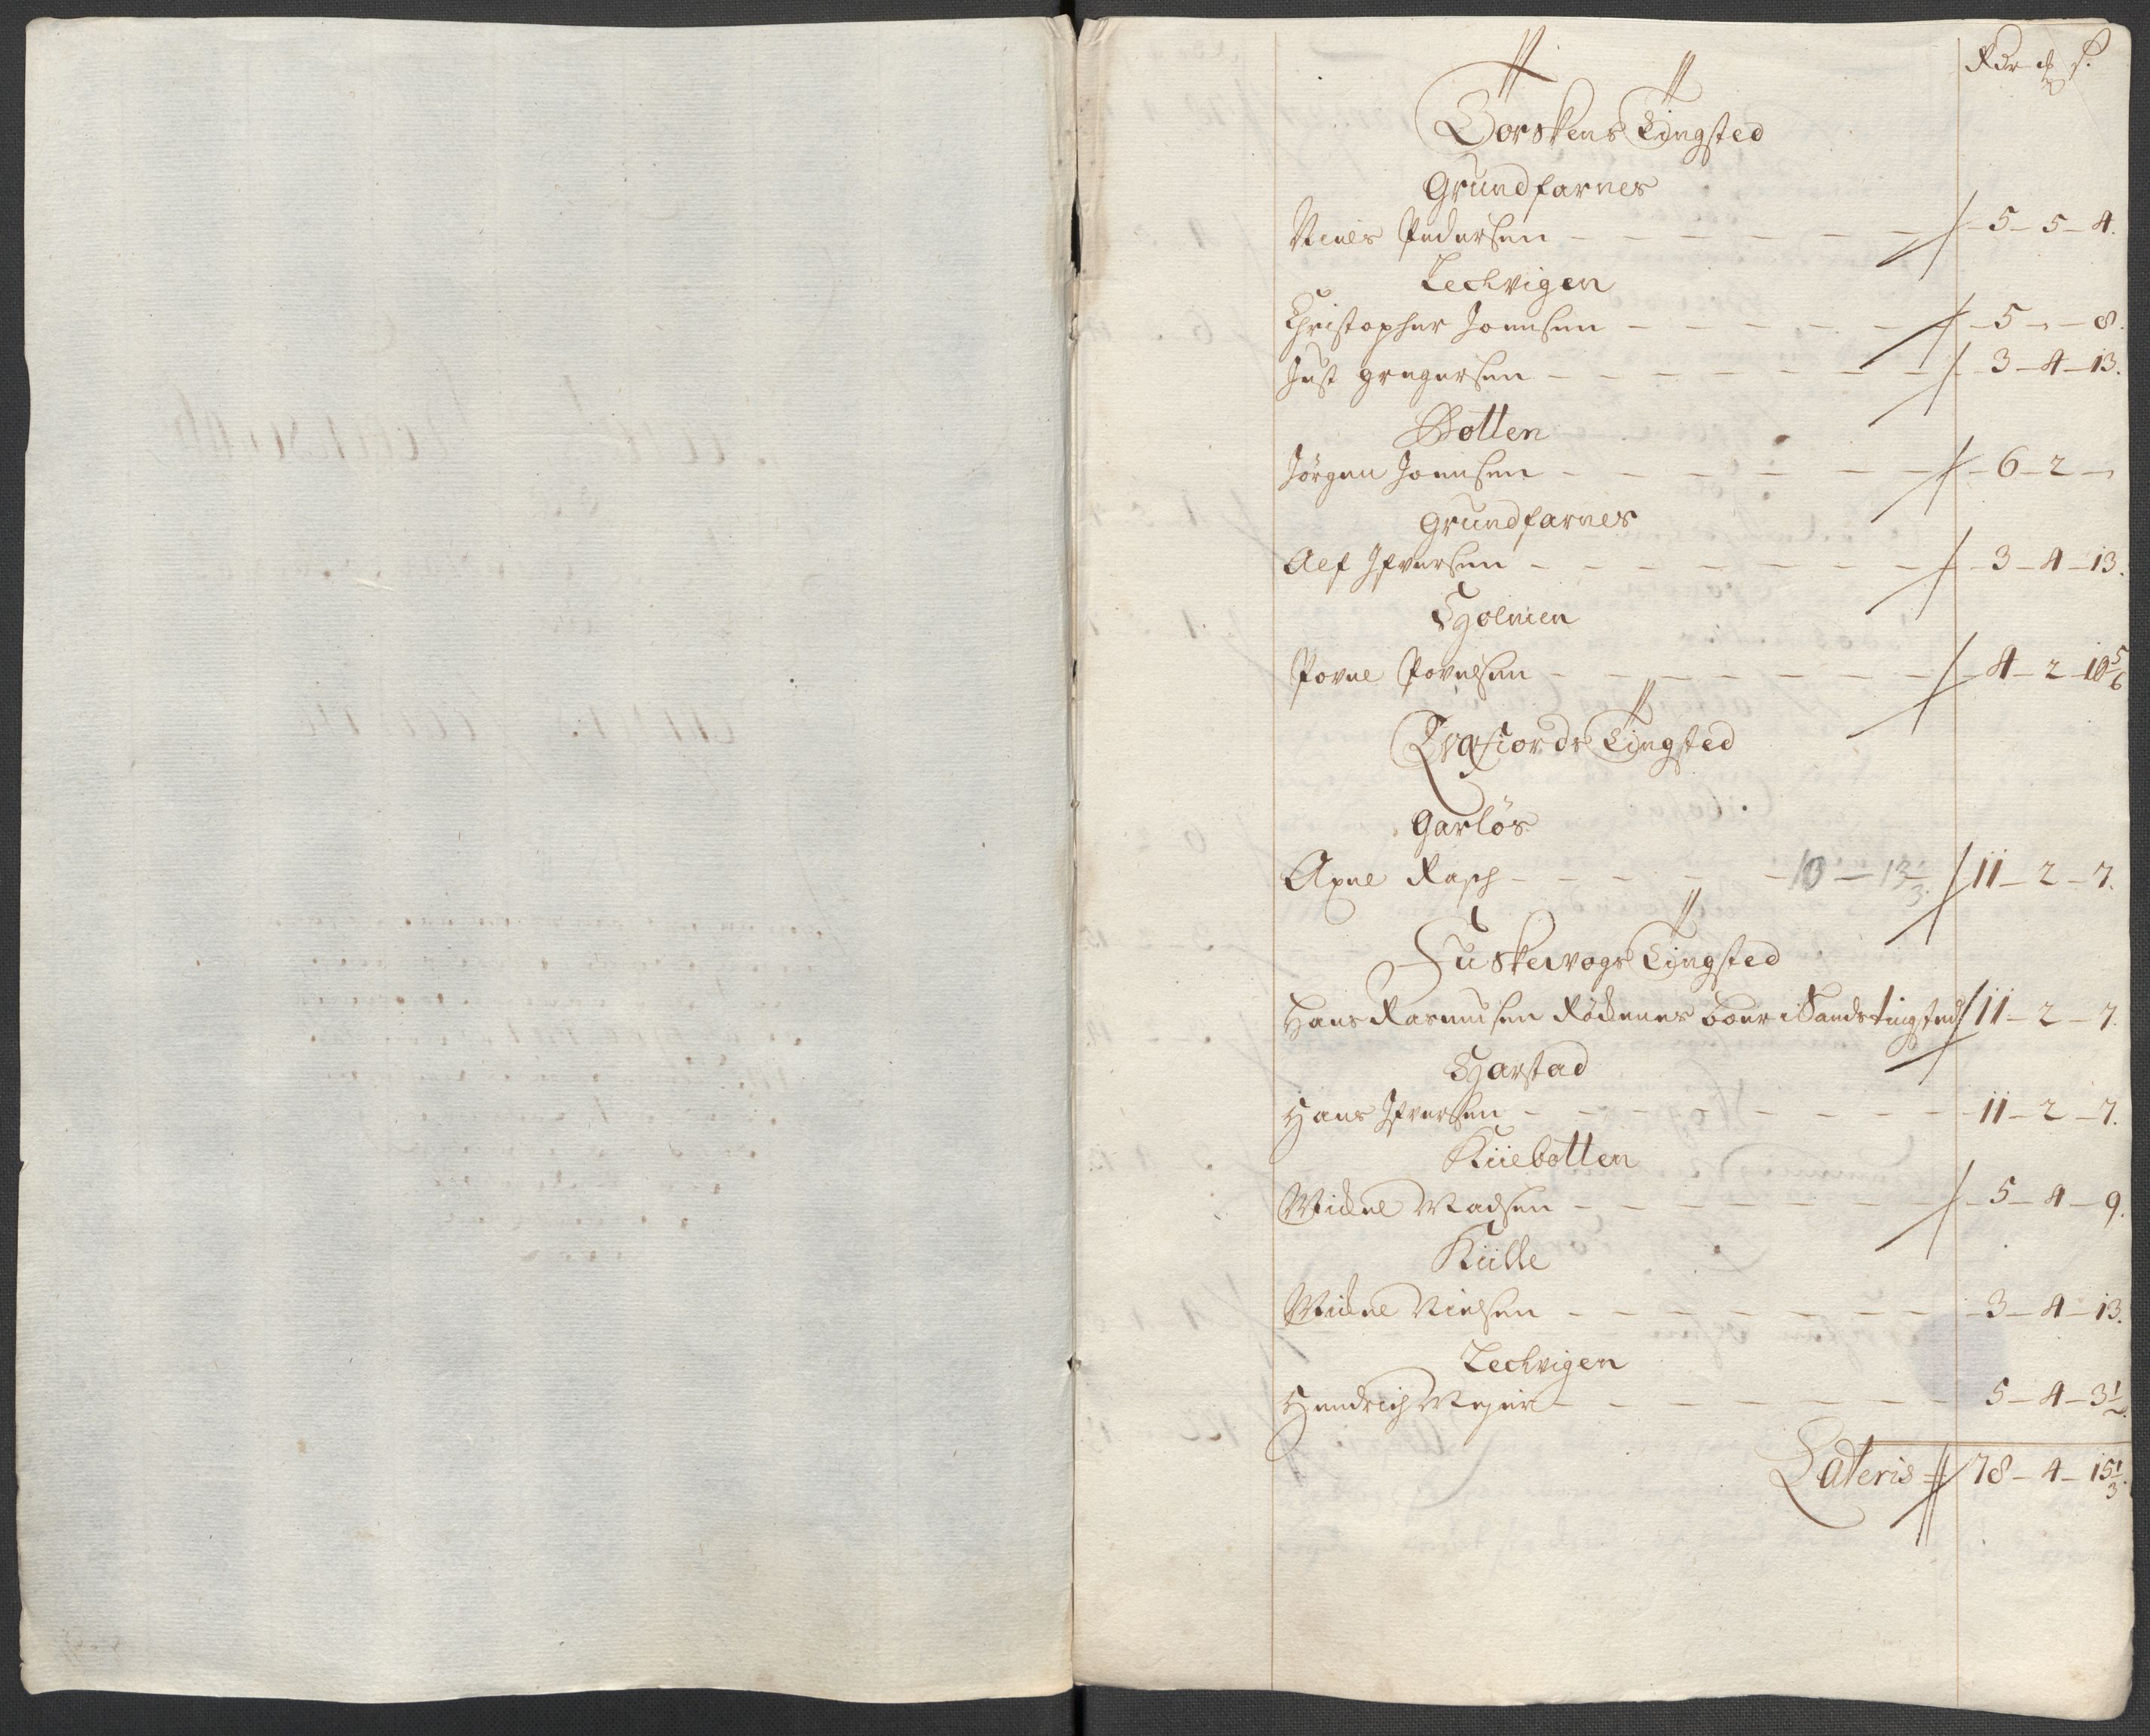 Rdr ß.
Torskens Tingsted
Grundfarnes
Niels Pedersen - - - - - - - 5 - 5 - 4.
Lechvigen
Christopher Joensen - - - - - - 5 - „ - 8.
Just gregersen - - - - - - - 3 - 4 - 13.
Botten
Jörgen Joensen - - - - - - - 6 - 2 - „
Grundfarnes
Alf Jfversen - - - - - - - - 3 - 4 - 13.
Holmen
Povel Povelsen - - - - - - - 4 - 2 - 10 5/6
Qvæfiords Tingsted
Garløs
Axel Rasch - - - - - 10 - 13 1/3. 11 - 2 - 7.
Fuskevogs Tingsted
Hans Rasmusen Röckenes boer i Sands tingsted 11 - 2 - 7.
Harstad
Hans Jfversen - - - - - - - - 11 - 2 - 7.
Kiiebotten
Mickel Madsen - - - - - - - 5 - 4 - 9.
Külle
Mickel Nielsen - - - - - - - 3 - 4 - 13.
Lechvigen
Hendrich Mejer - - - - - - - 5 - 4 - 3 1/2.
Lateris 78 - 4 - 15 1/3.